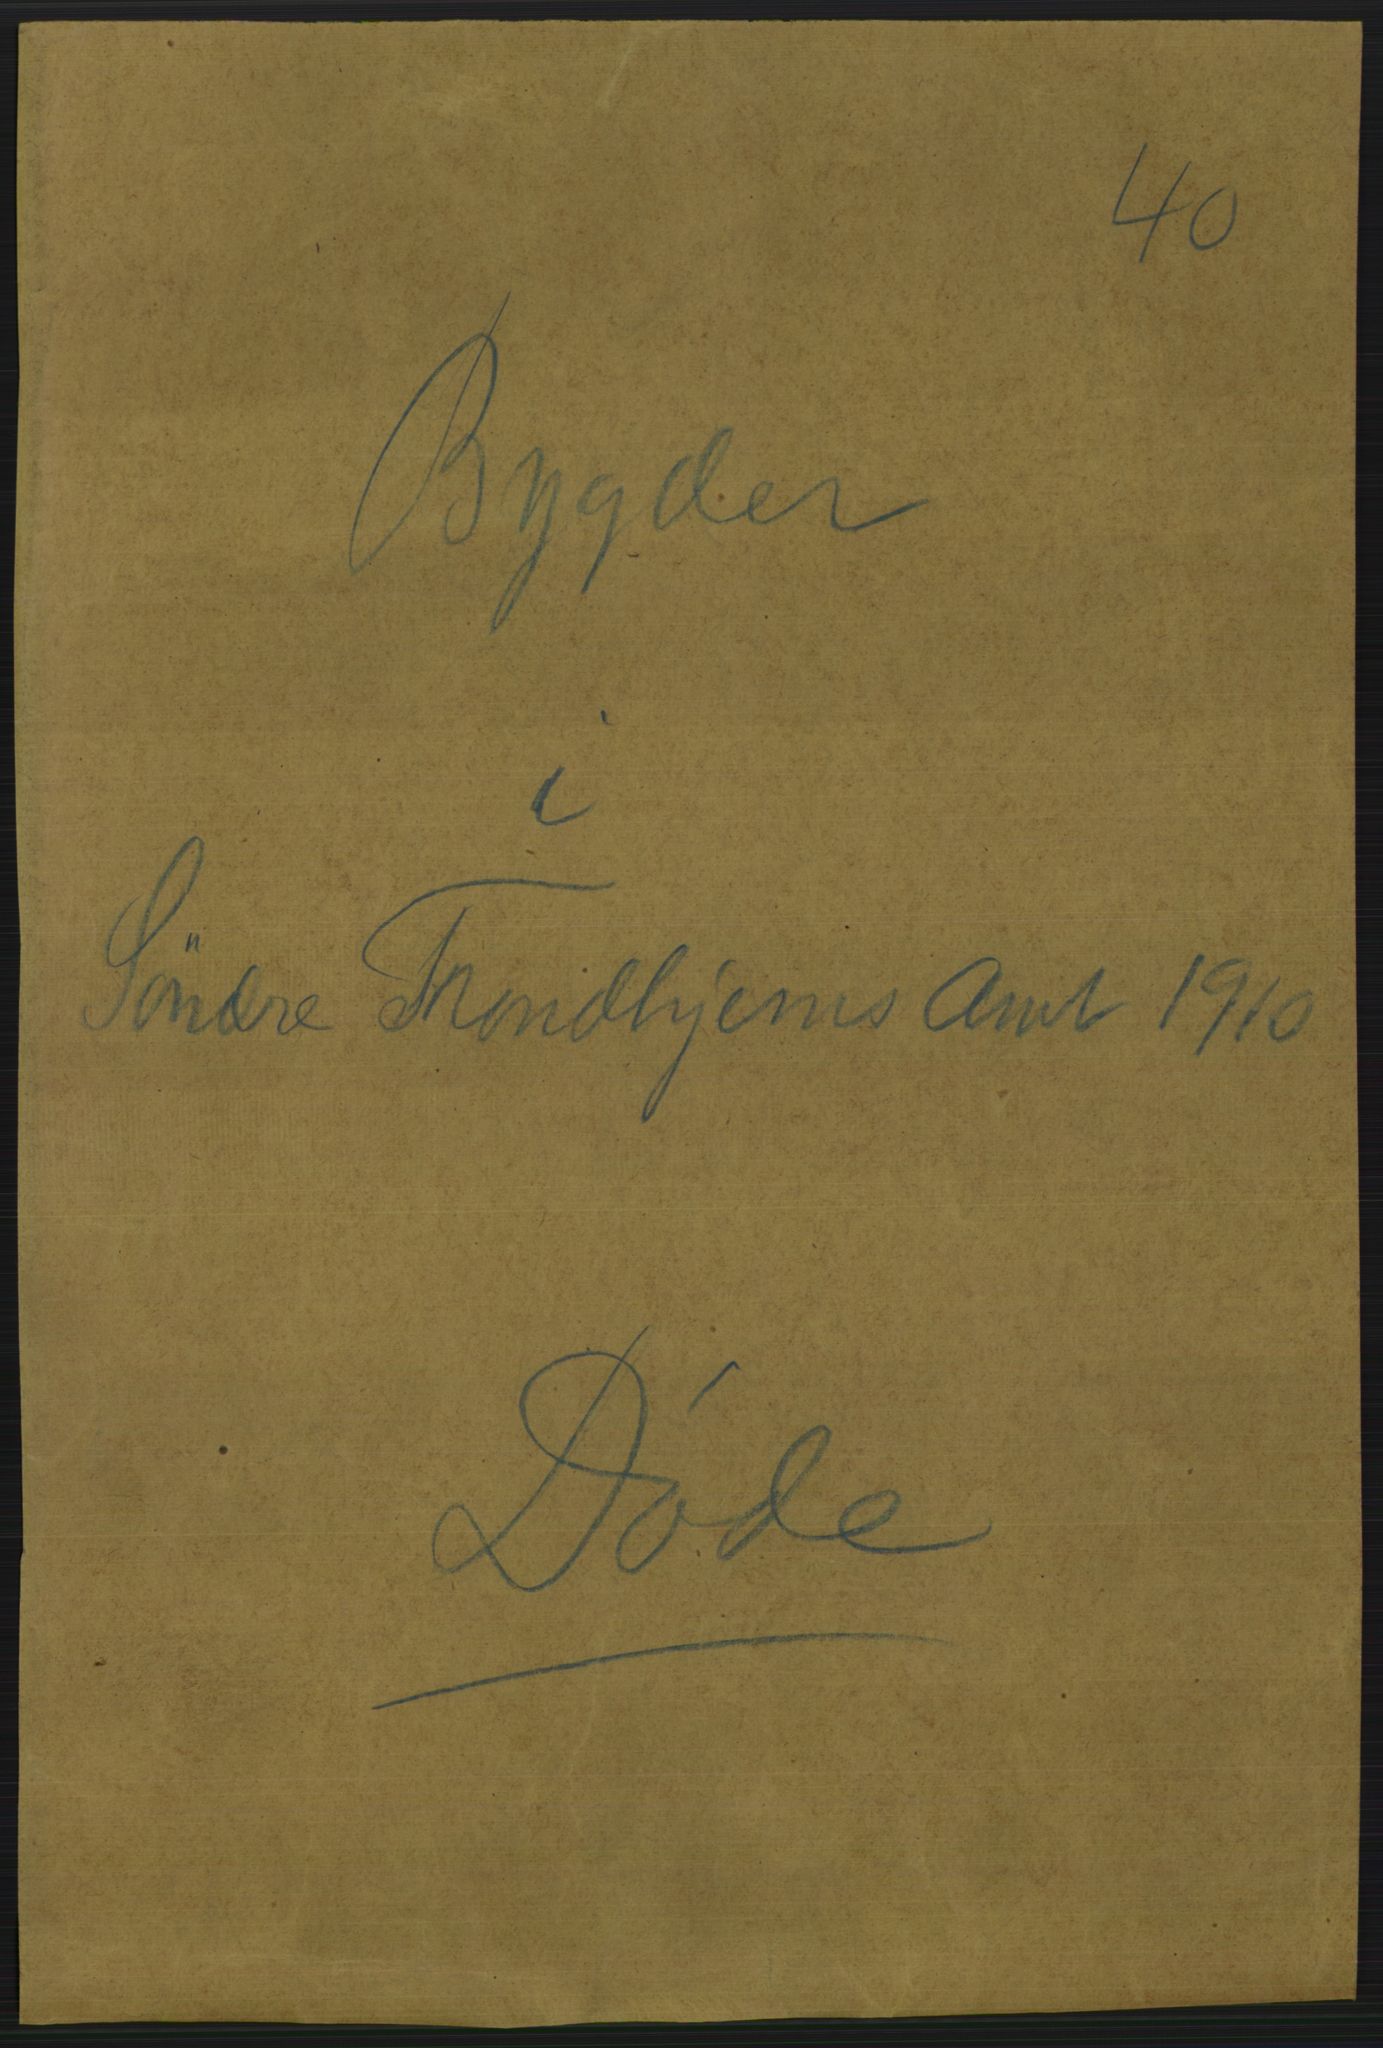 40
Bygder
i
Söndre Trondhjems Amt 1910
Döde